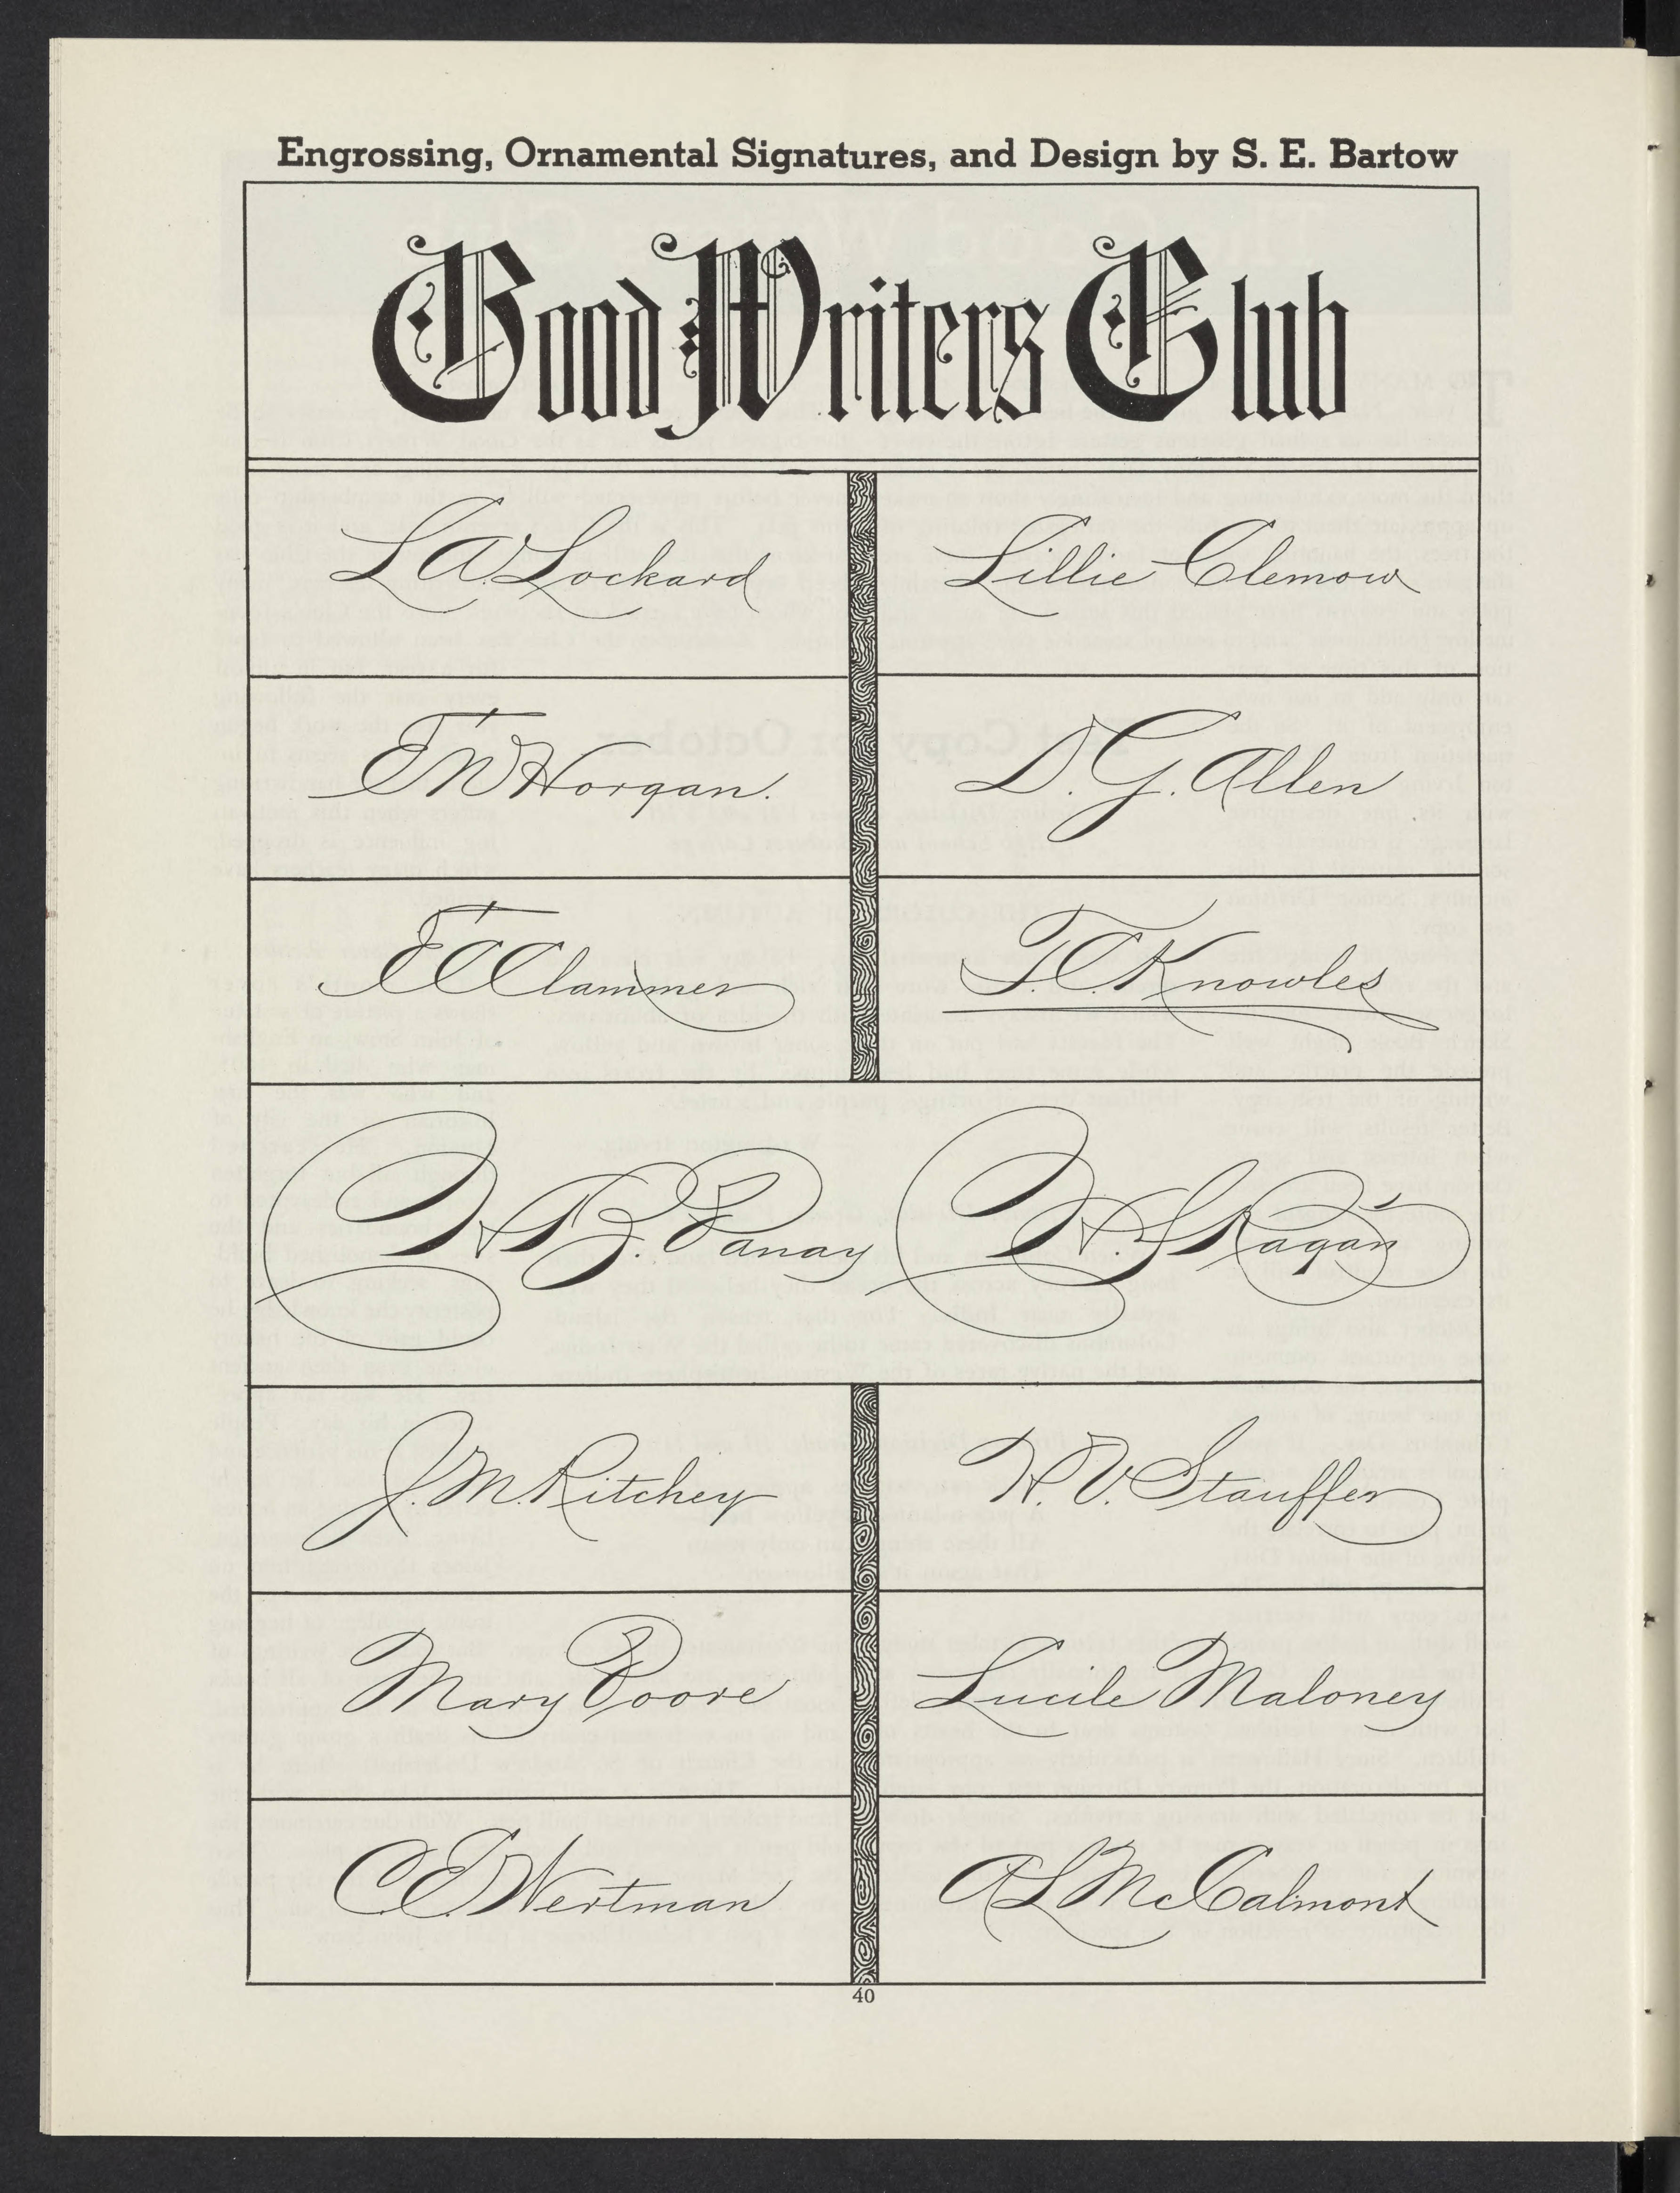 Engrossing, Ornamental Signatures, and Design by S. E. Bartow
Good Writers Club
L A Lockard
Lillie Clemow
T W Horgan.
D. G. Allen
E C Clammer
T. C. Knowles
H. B. Panay
H. S. Ragan
J. M. Ritchey
H. V. Stauffer
Mary Poore
Lucile Maloney
C. E. Wertman
A L McCalmont
40